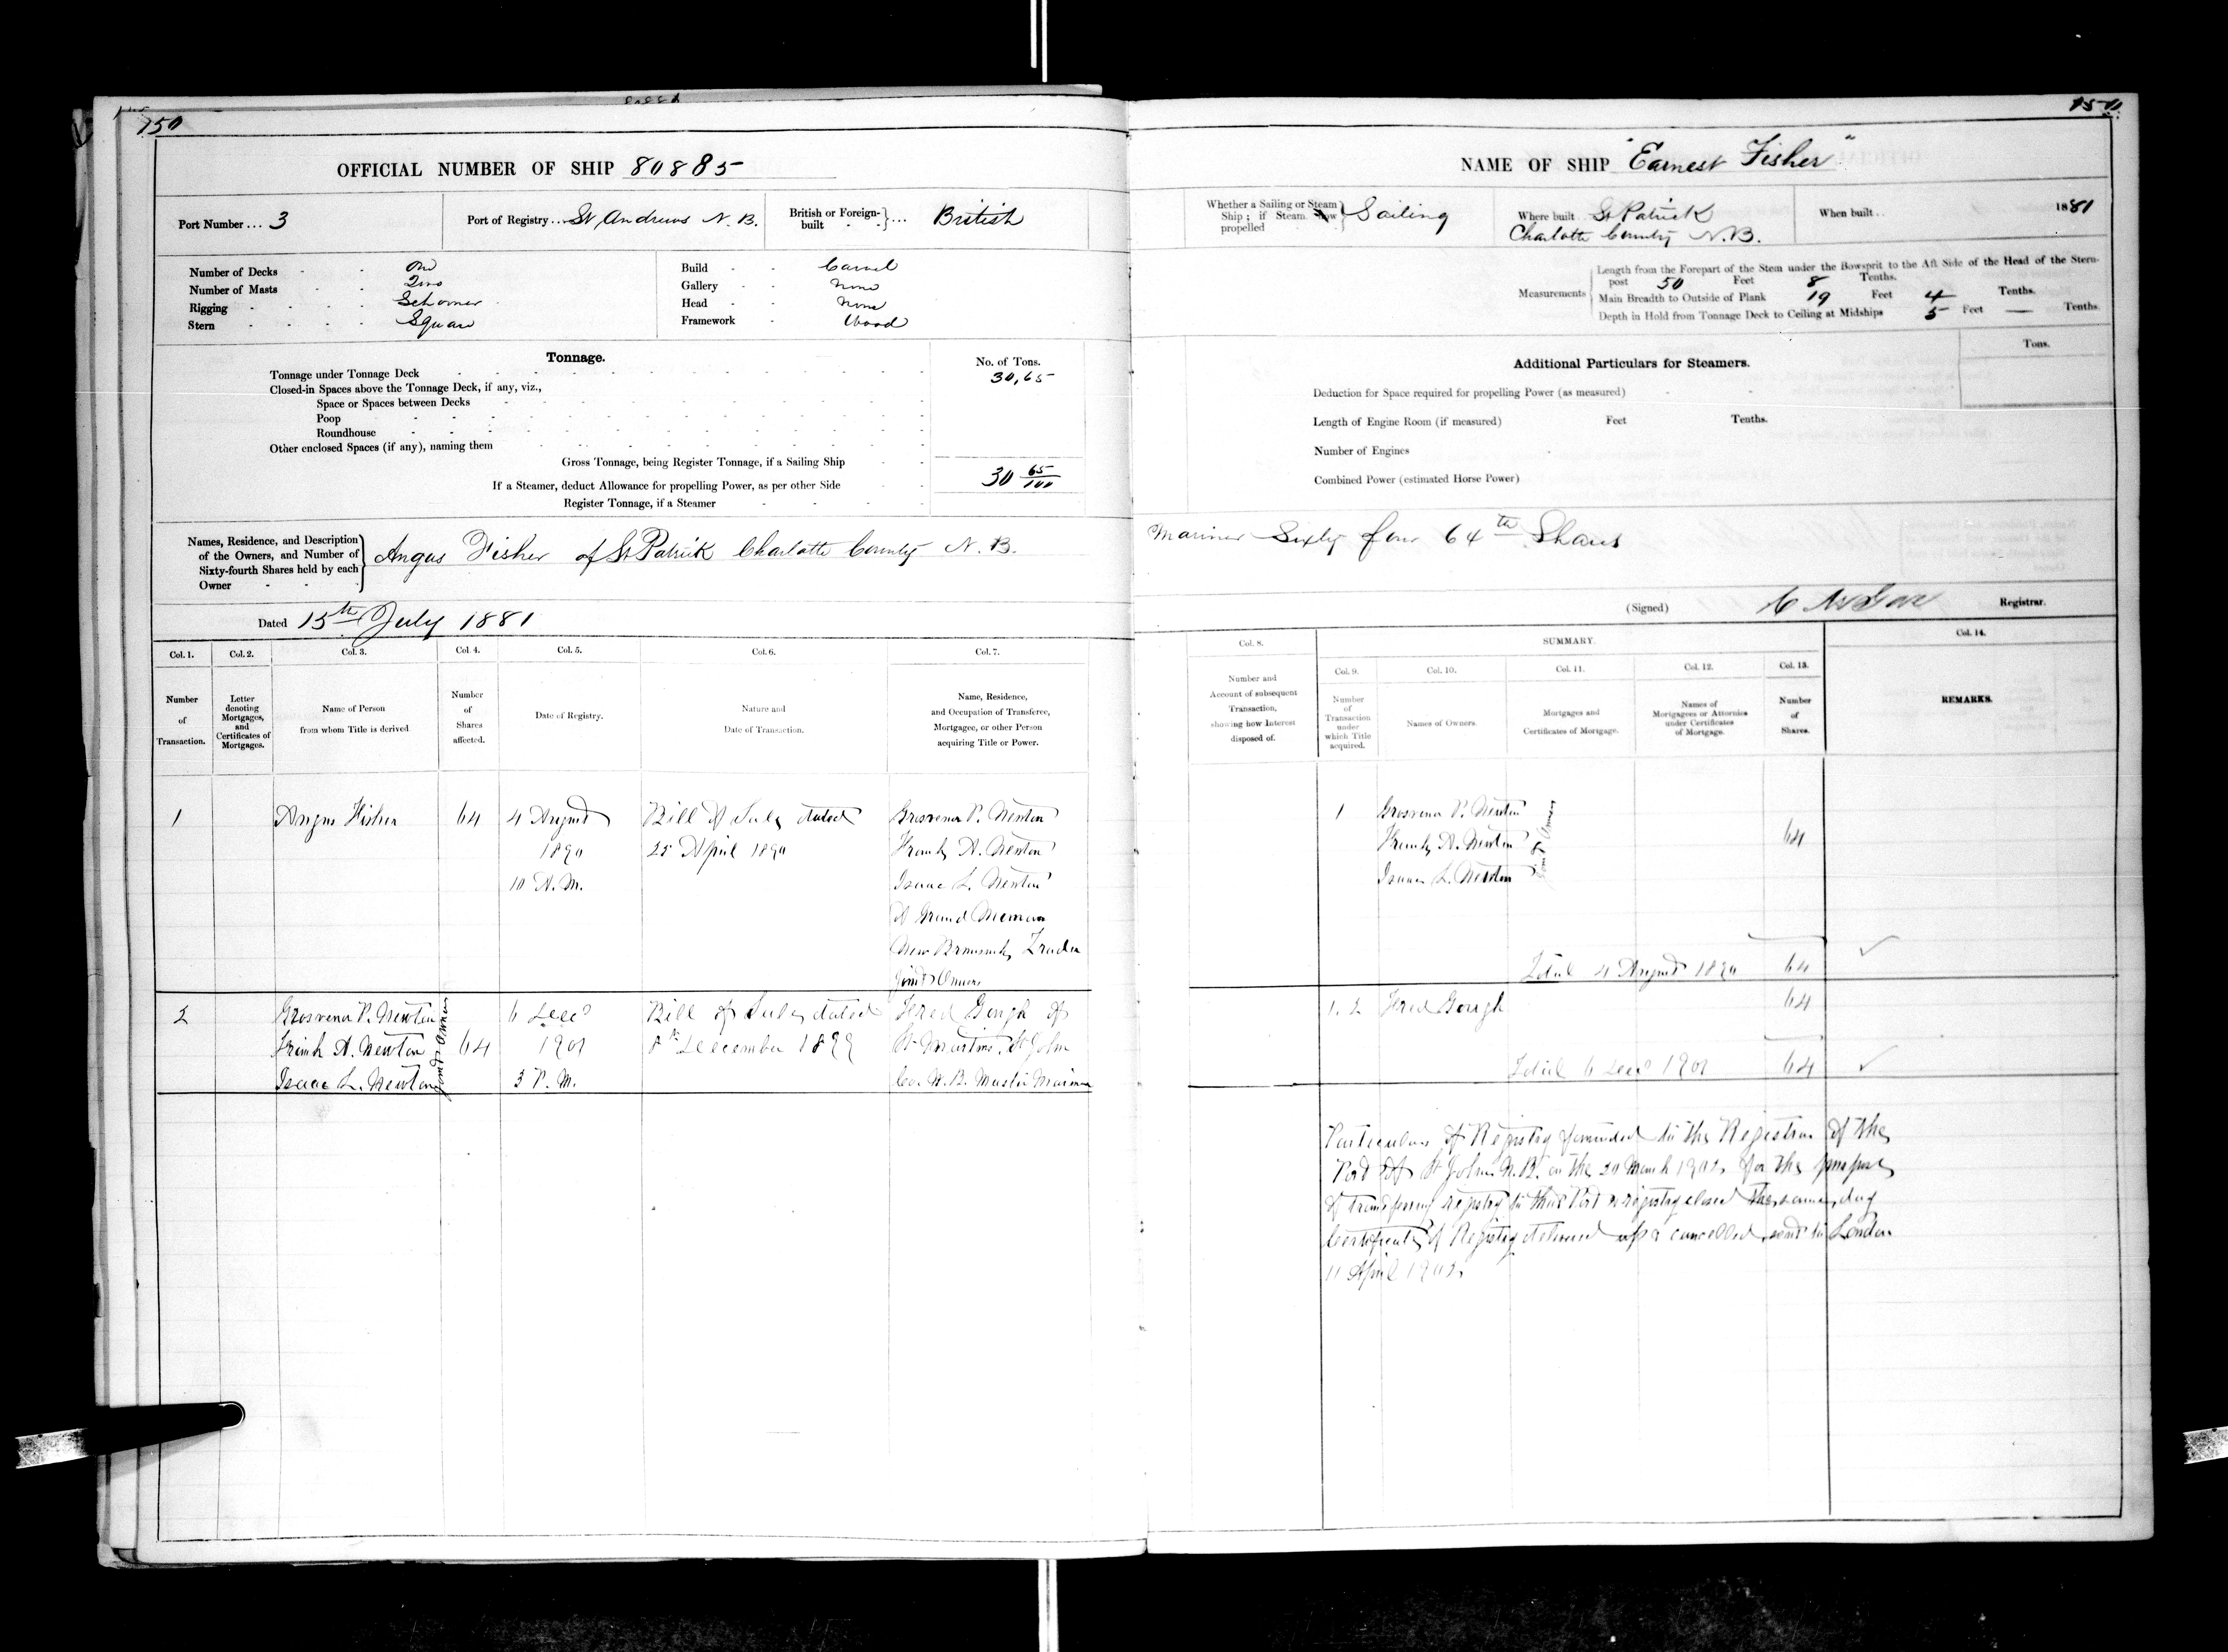 150
OFFICIAL NUMBER OF SHIP 80885
Port Number ... 3
Port of Registry ... St Andrews N. B.
British or Foreign-built ... British
Number of Decks One
Number of Masts Two
Rigging Schooner
Stern Square
Build Carvel
Gallery None
Head None
Framework Wood
Tonnage.
No. of Tons.
Tonnage under Tonnage Deck 30,65
Closed-in Spaces above the Tonnage Deck, if any, viz.,
Space or Spaces between Decks
Poop
Roundhouse
Other enclosed Spaces (if any), naming them
Gross Tonnage, being Register Tonnage, if a Sailing Ship
30 65/100
If a Steamer, deduct Allowance for propelling Power, as per other Side
Register Tonnage, if a Steamer
Names, Residence, and Description
of the Owners, and Number of
Sixty-fourth Shares held by each
Owner
Angus Fisher of St Patrick Charlotte County N. B.
Dated 15th July 1881
Col. 1. Col. 2. Col. 3. Col. 4. Col. 5. Col. 6. Col. 7.
Number of Transaction.
Letter denoting Mortgages, and Certificates of Mortgages.
Name of Person from whom Title is derived
Number of Shares affected.
Date of Registry.
Nature and Date of Transaction.
Name, Residence, and Occupation of Transferee, Mortgagee, or other Person acquiring Title or Power.
1 Angus Fisher 64 4 August Bill of Sale dated Grosvenor P. Newton
1890 25 April 1890 Frank A. Newton
10 A.M. Isaac L. Newton
of Grand Manan
New Brunswick, Trader
Joint Owners
2 Grosvenor P. Newton 6 Decr Bill of Sale dated Fred Gough of
Frank A. Newton 64 1901 8th December 1899 St Martins, St John
Isaac L. Newton 3 P. M. Co. N.B. Master Mariner
Joint Owners
150
NAME OF SHIP "Earnest Fisher"
Whether a Sailing or Steam
Ship; if Steam how
propelled
Sailing
Where built St Patrick
Charlotte County N.B.
When built.. 1881
Measurements
Length from the Forepart of the Stem under the Bowsprit to the Aft Side of the Head of the Stern-
post 50 Feet 8 Tenths.
Main Breadth to Outside of Plank 19 Feet 4 Tenths.
Depth in Hold from Tonnage Deck to Ceiling at Midships 5 Feet — Tenths.
Additional Particulars for Steamers.
Tons.
Deduction for Space required for propelling Power (as measured)
Length of Engine Room (if measured) Feet Tenths.
Number of Engines
Combined Power (estimated Horse Power)
Mariner Sixty four 64th Shares
(Signed) Registrar.
Col. 8. SUMMARY. Col. 14.
Col. 9. Col. 10. Col. 11. Col. 12. Col. 13.
Number and Account of subsequent Transaction, showing how Interest disposed of.
Number of Transaction under which Title acquired.
Names of Owners.
Mortgages and Certificates of Mortgage.
Names of Mortgagees or Attornies under Certificates of Mortgage.
Number of Shares.
REMARKS.
1 Grosvenor P. Newton
Frank A. Newton 64
Isaac L. Newton
Joint Owners
Total 4 August 1890 64
1. 2 Fred Gough 64
Total 6 Decr 1901 64
Particulars of Registry forwarded to the Registrar of the
Port of St John N.B. on the 20 March 1902 for the purpose
of transferring registry to that Port & registry closed the same day
Certificate of Registry delivered up & cancelled, sent to London
11 April 1902.